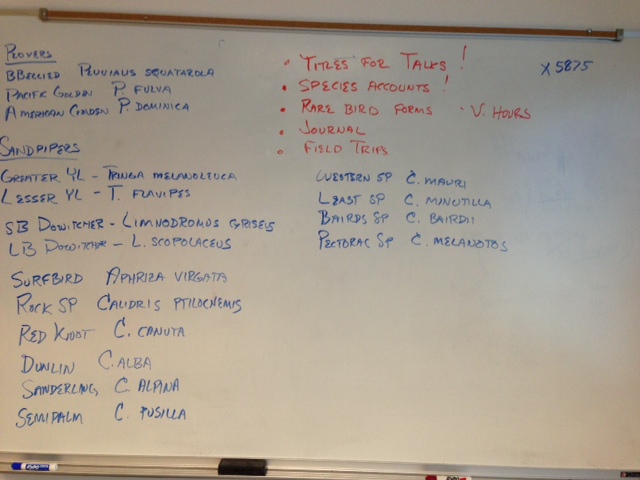 PLOVERS
BBELLIED PLUVIALIS SQUATAROLA
PACIFIC GOLDEN P. FULVA
AMERICAN GOLDEN P. DOMINICA
SANDPIPERS
GREATER YL - TRINGA MELANOLEUCA
LESSER YL - T. FLAVIPES
SB DOWITCHER - LIMNODROMUS GRISEUS
LB DOWITCHER - L. SCOLOPACEUS
SURFBIRD APHRIZA VIRGATA
ROCK SP CALIDRIS PTILOCNEMIS
RED KNOT C. CANUTA
DUNLIN C. ALBA
SANDERLING C. ALPINA
SEMIPALM C. PUSILLA
• TITLES FOR TALKS!
• SPECIES ACCOUNTS!
• RARE BIRD FORMS - V. HOURS
• JOURNAL
• FIELD TRIPS
WESTERN SP C. MAURI
LEAST SP C. MINUTILLA
BAIRDS SP C. BAIRDII
PECTORAL SP C. MELANOTOS
X5875
EXPO